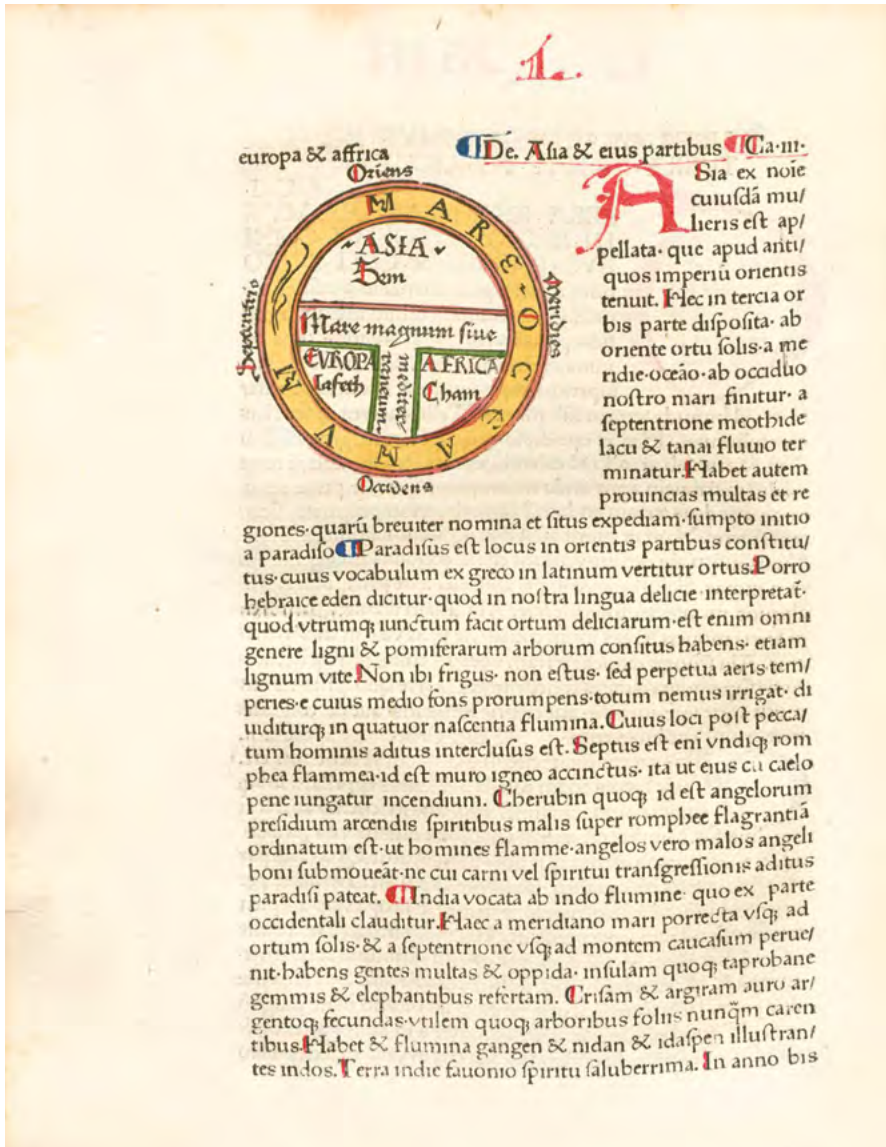 1.
europa & affrica
¶De. Asia & eius partibus ¶Ca·iii·
Oriens
MARE·OCEANVM
Septentrio
Meridies
Occidens
ASIA
Sem
Mare magnum siue
mediterraneum
EVROPA
Iafeth
AFRICA
Cham
ASia ex noīe
cuiusdā mu/
lieris est ap/
pellata· que apud anti/
quos imperiū orientis
tenuit. Hec in tercia or
bis parte disposita· ab
oriente ortu solis·a me
ridie·oceāo·ab occiduo
nostro mari finitur· a
septentrione meothide
lacu & tanai fluuio ter
minatur.Habet autem
prouincias multas et re
giones·quarū breuiter nomina et situs expediam·sumpto initio
a paradiso¶Paradisus est locus in orientis partibus constitu/
tus·cuius vocabulum ex greco in latinum vertitur ortus.Porro
hebraice eden dicitur·quod in nostra lingua delicie interpretat̄·
quod vtrumqꝫ iunctum facit ortum deliciarum·est enim omni
genere ligni & pomiferarum arborum consitus habens· etiam
lignum vite.Non ibi frigus· non estus· sed perpetua aeris tem/
peries·e cuius medio fons prorumpens·totum nemus irrigat· di
uiditurqꝫ in quatuor nascentia flumina.Cuius loci post pecca/
tum hominis aditus interclusus est. Septus est eni vndiqꝫ rom
phea flammea·id est muro igneo accinctus· ita ut eius cū caelo
pene iungatur incendium. Cherubin quoqꝫ id est angelorum
presidium arcendis spiritibus malis super romphee flagrantiā
ordinatum est·ut homines flamme·angelos vero malos angeli
boni submoueāt·ne cui carni vel spiritui transgressionis aditus
paradisi pateat. ¶India vocata ab indo flumine· quo ex parte
occidentali clauditur.Haec a meridiano mari porrecta vsqꝫ ad
ortum solis·& a septentrione vsqꝫ ad montem caucasum perue/
nit·habens gentes multas & oppida· insulam quoqꝫ taprobane
gemmis & elephantibus refertam. Crisam & argiram auro ar/
gentoqꝫ fecundas·vtilem quoqꝫ arboribus foliis nunq̄m caren
tibus.Habet & flumina gangen & nidan & idaspen illustran/
tes indos.Terra indie fauonio spiritu saluberrima. In anno bis